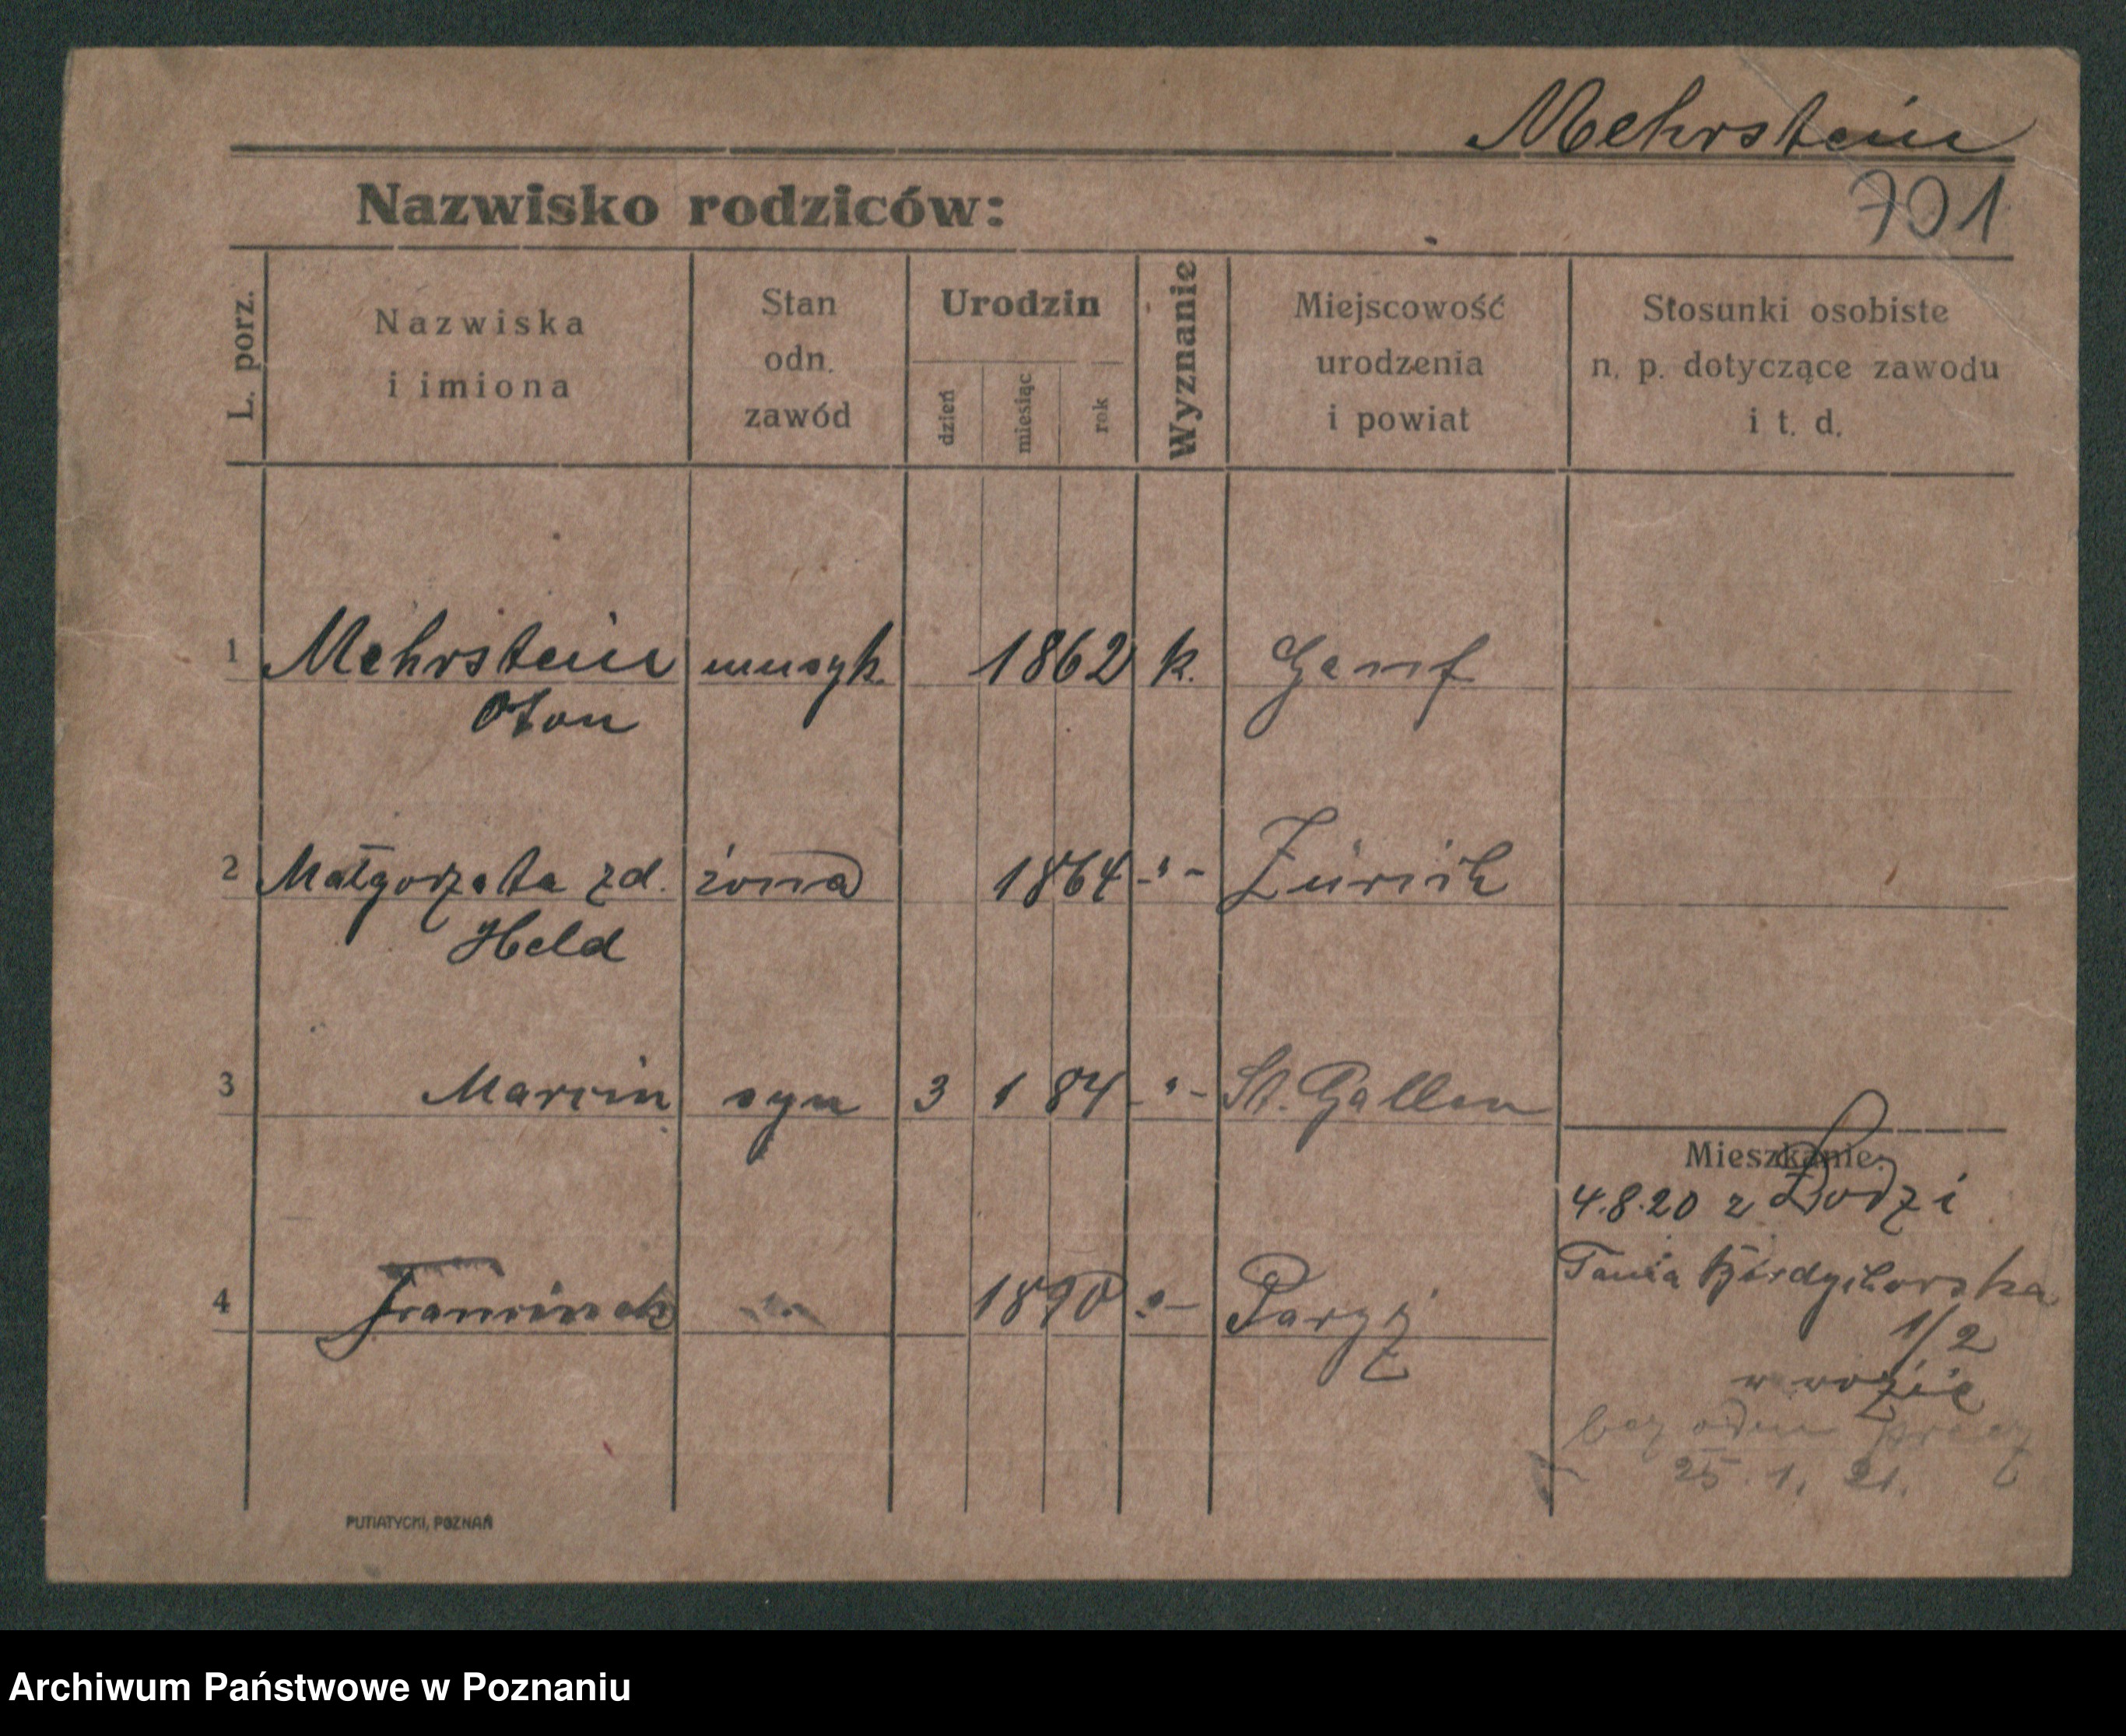 Mehrstein
Nazwisko rodziców:
701
L. porz.
Nazwiska
i imiona
Stan
odn.
zawód
Urodzin
dzień
miesiąc
rok
Wyznanie
Miejscowość
urodzenia
i powiat
Stosunki osobiste
n. p. dotyczące zawodu
i t. d.
1 Mehrstein muzyk. 1862 k. Genf
Oton
2 Małgorzata zd. żona 1864 -"- Zürich
Held
3 Marcin syn 3 1 84 -"- St. Gallen
Mieszkanie:
4.8.20 z Łodzi
4 Franciszek 1890 -"- Paryż
Tania
1/2
w wozie
bez odm pracy
25. 1. 21.
PUTIATYCKI, POZNAŃ
Archiwum Państwowe w Poznaniu